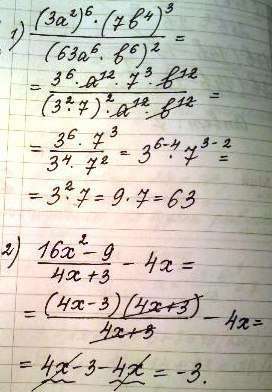 1) (3a²)⁶ · (7b⁴)³ / (63a⁶ · b⁶)² =
= 3⁶ · a¹² · 7³ · b¹² / (3² · 7)² · a¹² · b¹² =
= 3⁶ · 7³ / 3⁴ · 7² = 3⁶⁻⁴ · 7³⁻² =
= 3² · 7 = 9 · 7 = 63
2) 16x² - 9 / 4x + 3 - 4x =
= (4x - 3)(4x + 3) / 4x + 3 - 4x =
= 4x - 3 - 4x = -3